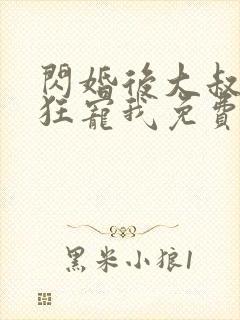 閃婚後大叔
狂寵我免費
黑米小狼1